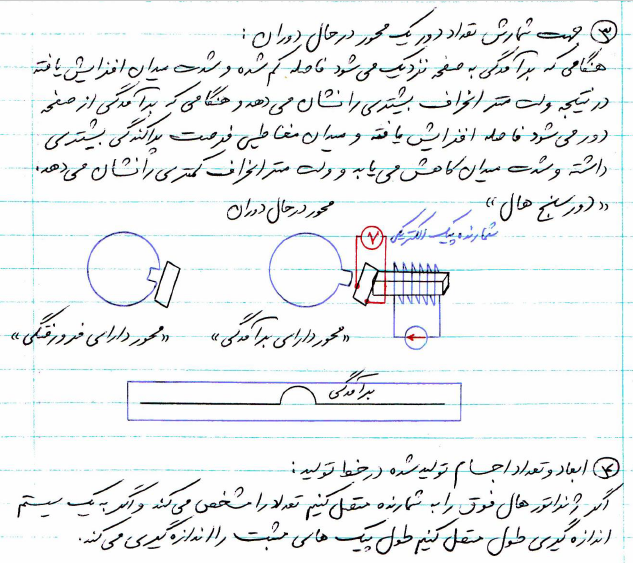 ③ جهت شمارش تعداد دور یک محور در حال دوران :
هنگامی که برآمدگی به صفحه نزدیک می شود فاصله کم شده و شدت میدان افزایش یافته
در نتیجه ولت متر انحراف بیشتری را نشان می دهد و هنگامی که برآمدگی از صفحه
دور می شود فاصله افزایش یافته و میدان مغناطیسی فرصت پراکندگی بیشتری
داشته و شدت میدان کاهش می یابد و ولت متر انحراف کمتری را نشان می دهد.
« دورسنج هال »
محور در حال دوران
شمارنده پیک الکتریکی
V
« محور دارای برآمدگی »
« محور دارای فرورفتگی »
برآمدگی
④ ابعاد و تعداد اجسام تولید شده در خط تولید :
اگر ژنراتور هال فوق را به شمارنده متصل کنیم تعداد را مشخص می کند و اگر به یک سیستم
اندازه گیری طول متصل کنیم طول پیک های مثبت را اندازه گیری می کند.